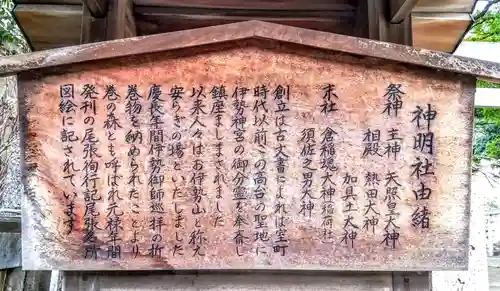 神明社由緒
祭神　主神　天照皇大神
相殿　熱田大神
加具土大神
末社　倉稲魂大神稲荷社
須佐之男大神
創立は古文書によれば室町
時代以前この高台の聖地に
伊勢神宮の御分霊を奉斎し
鎮座ましまされました
以来人々はお伊勢山と称え
安らぎの場といたしました
慶長年間伊勢御師巡拝の折
巻物を納められたことより
巻の森とも呼ばれ元禄年間
発刊の尾張徇行記尾張名所
図絵に記されています